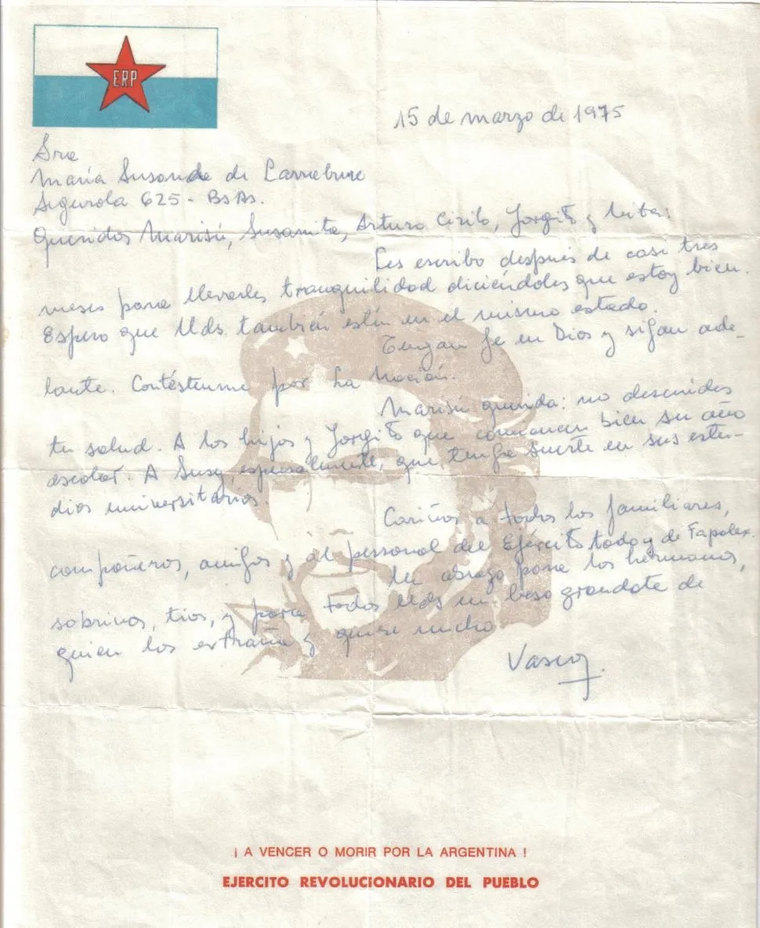 ERP
15 de marzo de 1975
Sra
María Susana de de Larrabure
Segurola 625 - BsAs.
Queridos Marisú, Susanita, Arturo Cirilo, Jorgito y
Les escribo después de casi tres
meses para llevarles tranquilidad diciéndoles que estoy bien.
Espero que Uds. también estén en el mismo estado.
Tengan fe en Dios y sigan ade-
lante. Contéstenme por La Nación.
Marisú querida: no descuides
tu salud. A los hijos y Jorgito que comiencen bien su año
escolar. A Susy, especialmente, que tenga suerte en sus estu-
dios universitarios.
Cariños a todos los familiares,
compañeros, amigos y al personal del Ejército todo y de Fapolex.
Un abrazo para los hermanos,
sobrinos, tíos, y para todos Uds un beso grandote de
quien los extraña y quiere mucho
Vasco
¡ A VENCER O MORIR POR LA ARGENTINA !
EJERCITO REVOLUCIONARIO DEL PUEBLO